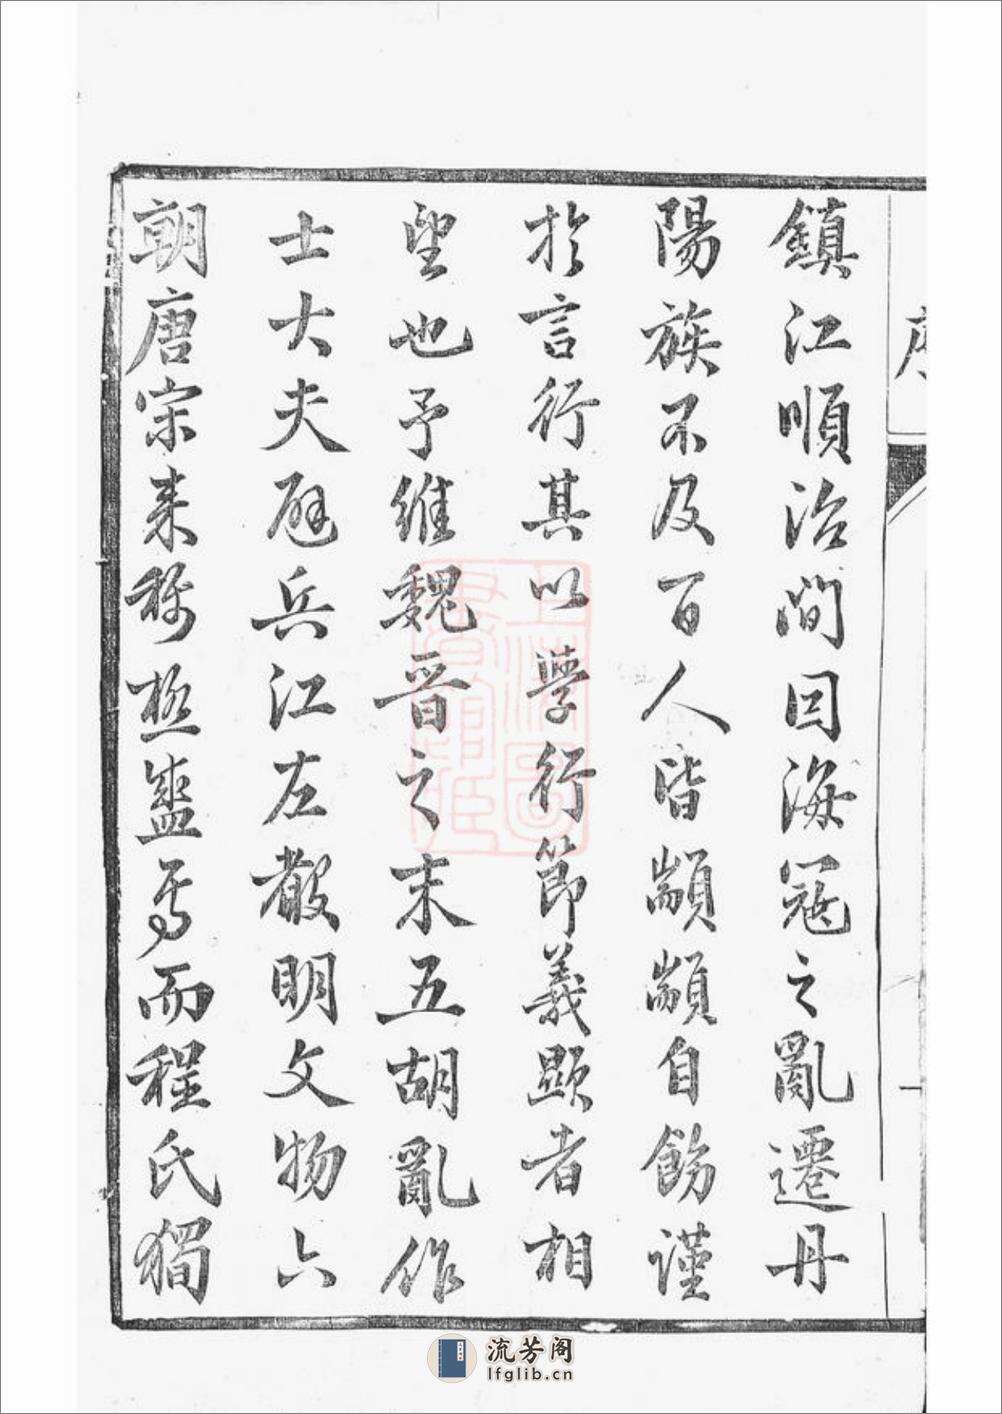 鎮江順治間因海冦之亂遷丹
陽族不及百人皆顓顓自飭謹
於言行其以學行節義顯者相
望也予維魏晉之末五胡亂作
士大夫避兵江左聲明文物六
朝唐宋来稱極盛焉而程氏獨
序
上海圖書館藏
流芳阁
lfglib.cn